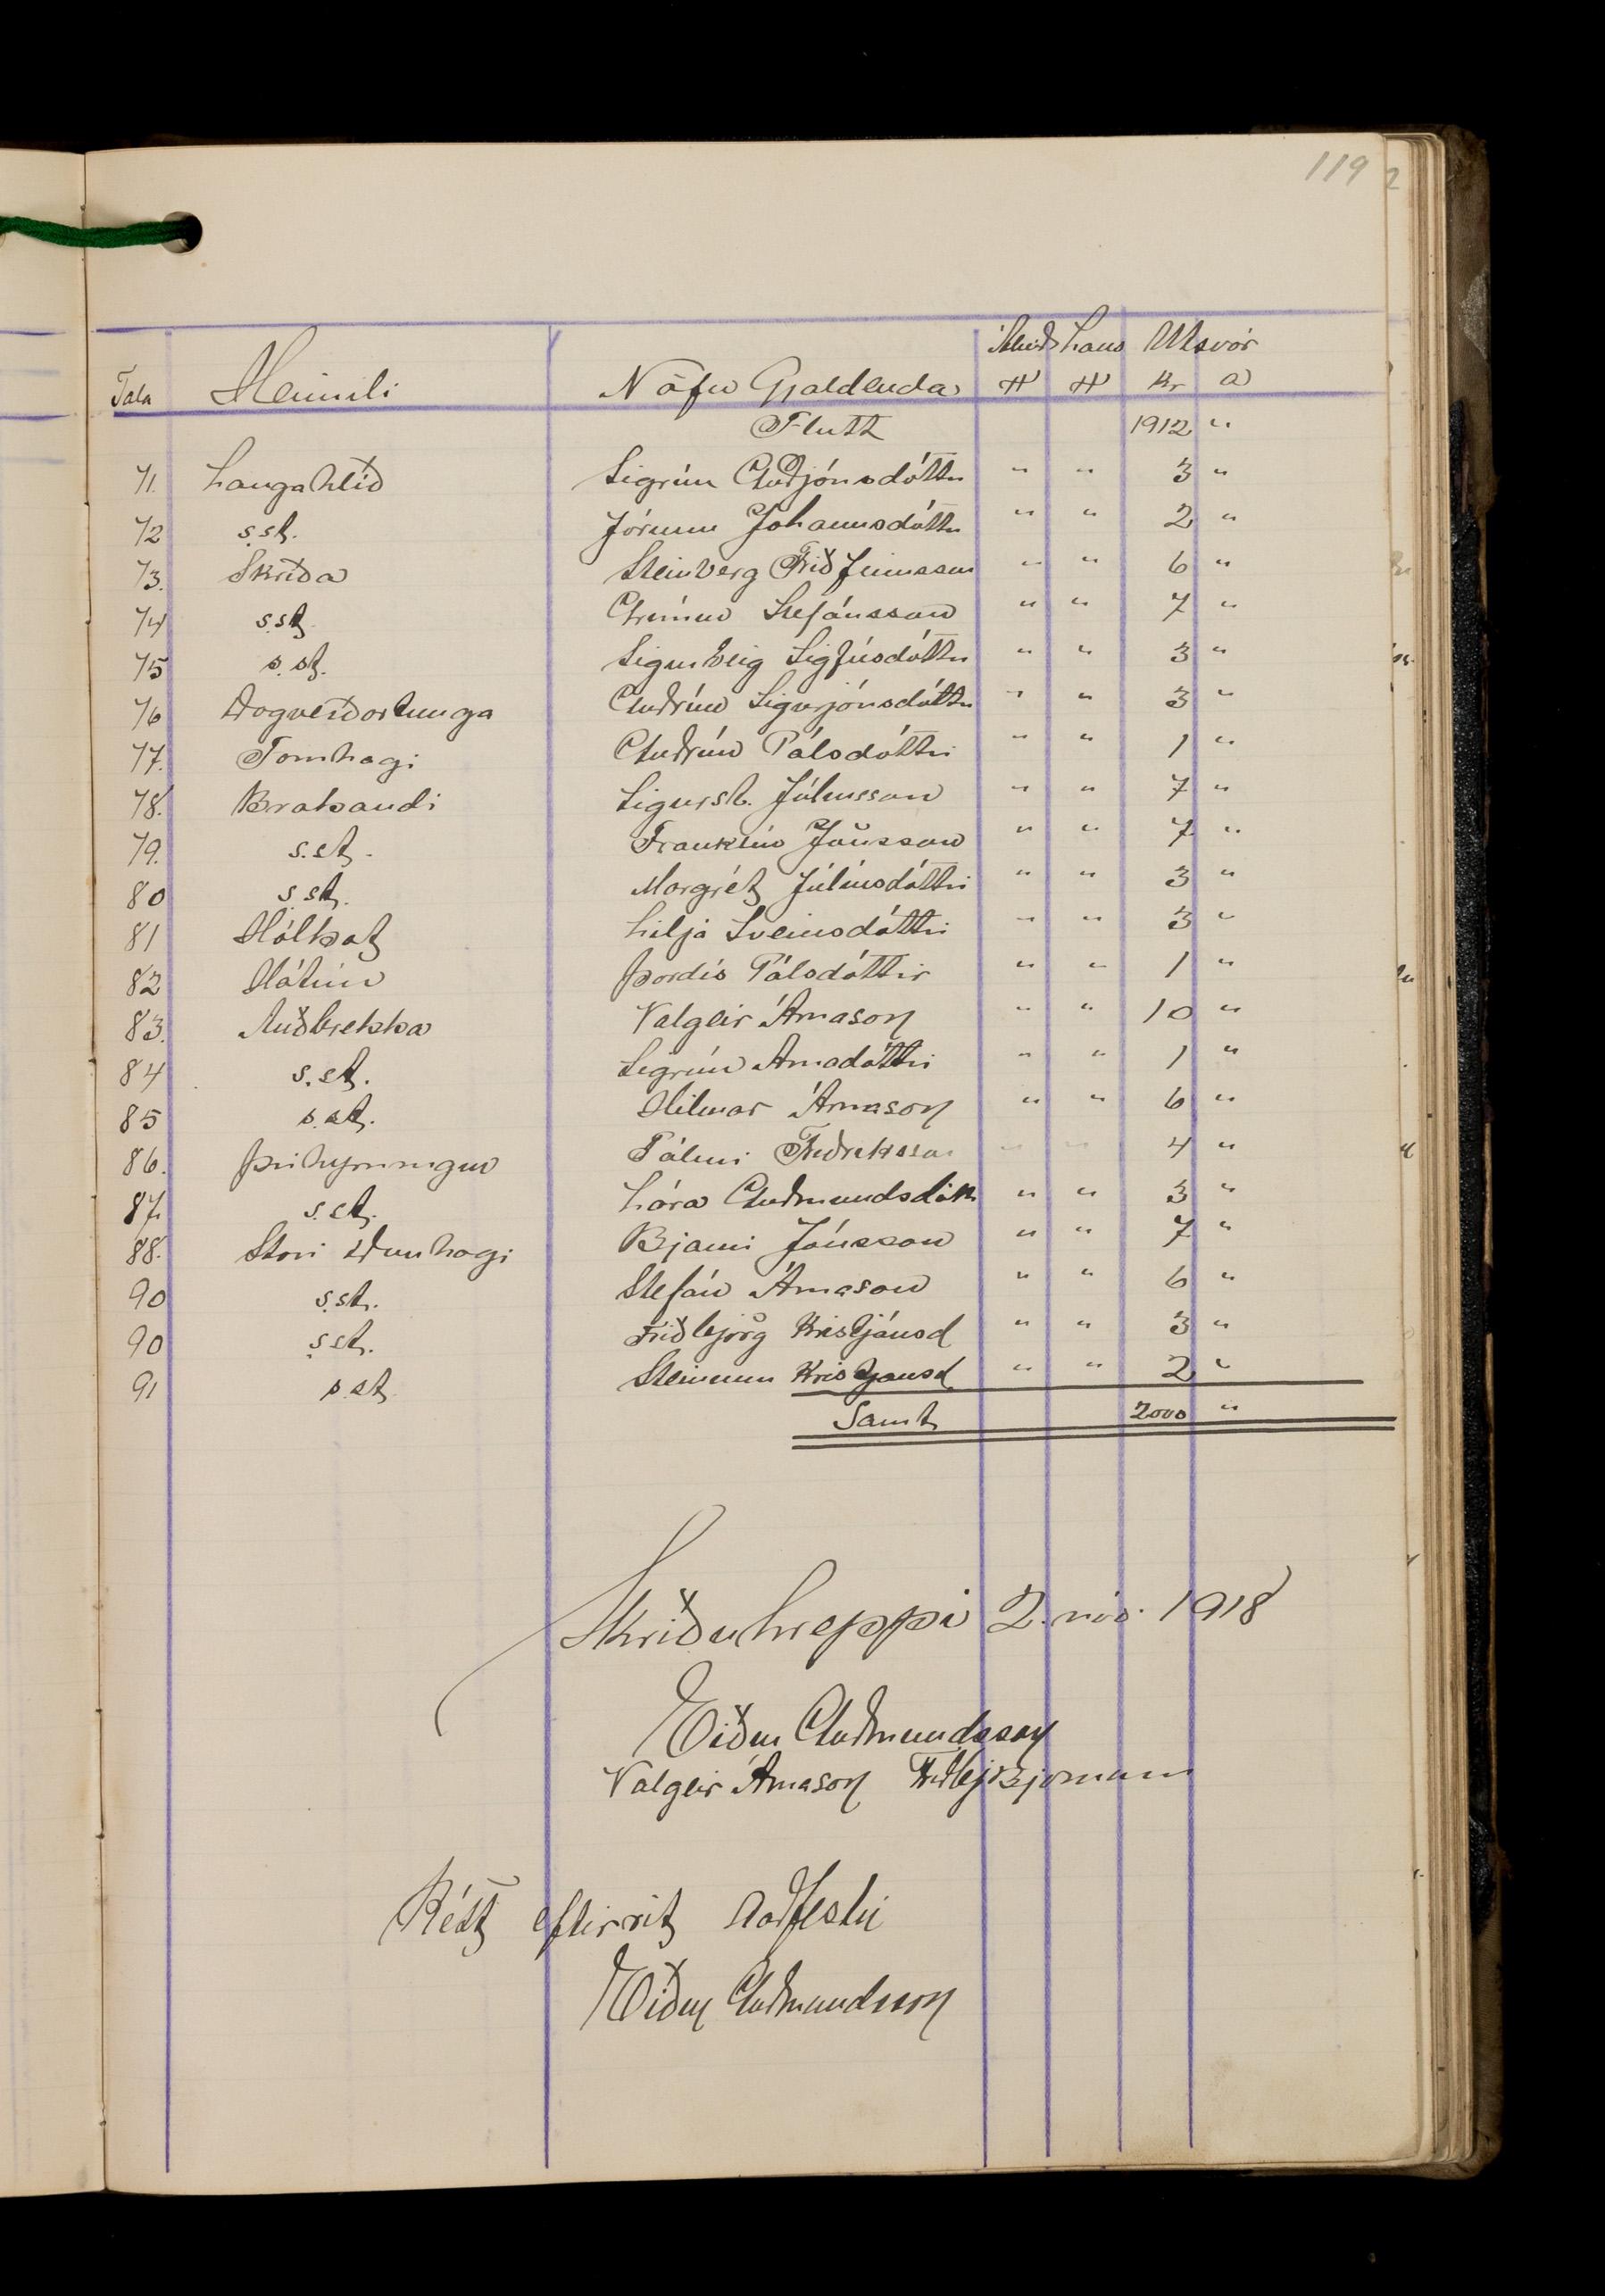 119
Ábúð Laus Útsvör
Tala Heimili Nöfn Gjaldenda H H Kr a
Flutt 1912 "
71. Langahlíð Sigrún Guðjónsdóttir " " 3 "
72 s.st. Jórunn Jóhannsdóttir " " 2 "
73. Skriða Steinberg Friðfinnsson " " 6 "
74 s.st. Stefánsson " " 7 "
75 s.st. Sigurveig Sigfúsdóttir " " 3 "
76 Dagverðartunga Guðrún Sigurjónsdóttir " " 3 "
77. Fornhagi Guðrún Pálsdóttir " " 1 "
78. Brakandi Sigurst. Júlíusson " " 7 "
79. s.st. Franklín Jónsson " " 7 "
80 s.st. Margrét Júlíusdóttir " " 3 "
81 Hólkot Lilja Sveinsdóttir " " 3 "
82 Hátún Þordís Pálsdóttir " " 1 "
83. Auðbrekka Valgeir Árnason " " 10 "
84 s.st. Sigrún Arnadóttir " " 1 "
85 s.st. Hilmar Árnason " " 6 "
86. Þríhyrningur Pálmi Friðriksson " " 4 "
87. s.st. Lára Guðmundsdótt " " 3 "
88. Stóri Dunhagi Bjarni Jónsson " " 7 "
90 s.st. Stefán Árnason " " 6 "
90 s.st. Friðbjörg Kristjánsd " " 3 "
91 s.st. Steinunn Kristjansd " " 2 "
Samt 2000 "
Skriðuhreppi 2. nóv. 1918
Eiður Guðmundsson
Valgeir Árnason Friðbj Bjornsson
Rétt eftirrit staðfestir
Eiður Guðmundsson